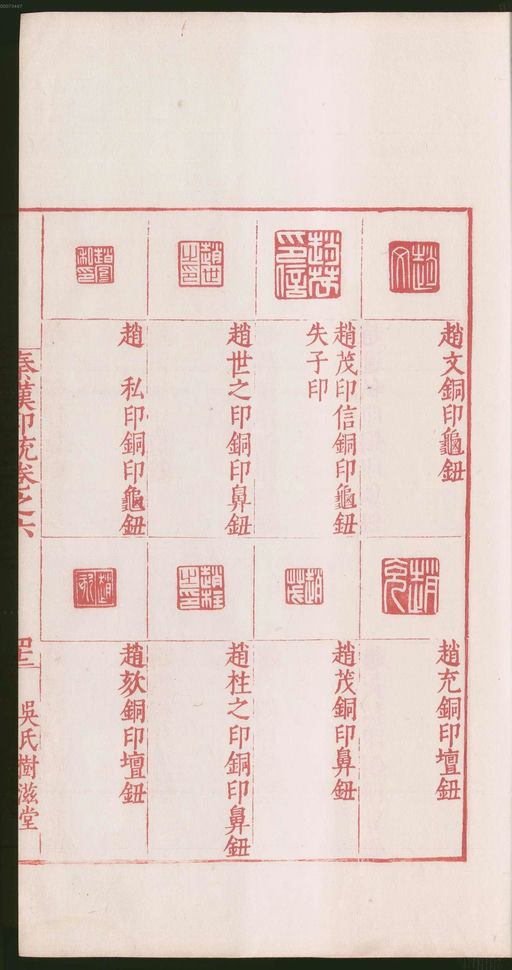 趙文銅印龜鈕
趙茂印信銅印龜鈕
失子印
趙世之印銅印鼻鈕
趙 私印銅印龜鈕
趙充銅印壇鈕
趙茂銅印鼻鈕
趙柱之印銅印鼻鈕
趙欬銅印壇鈕
秦漢印統卷之六
吳氏樹滋堂
00073447